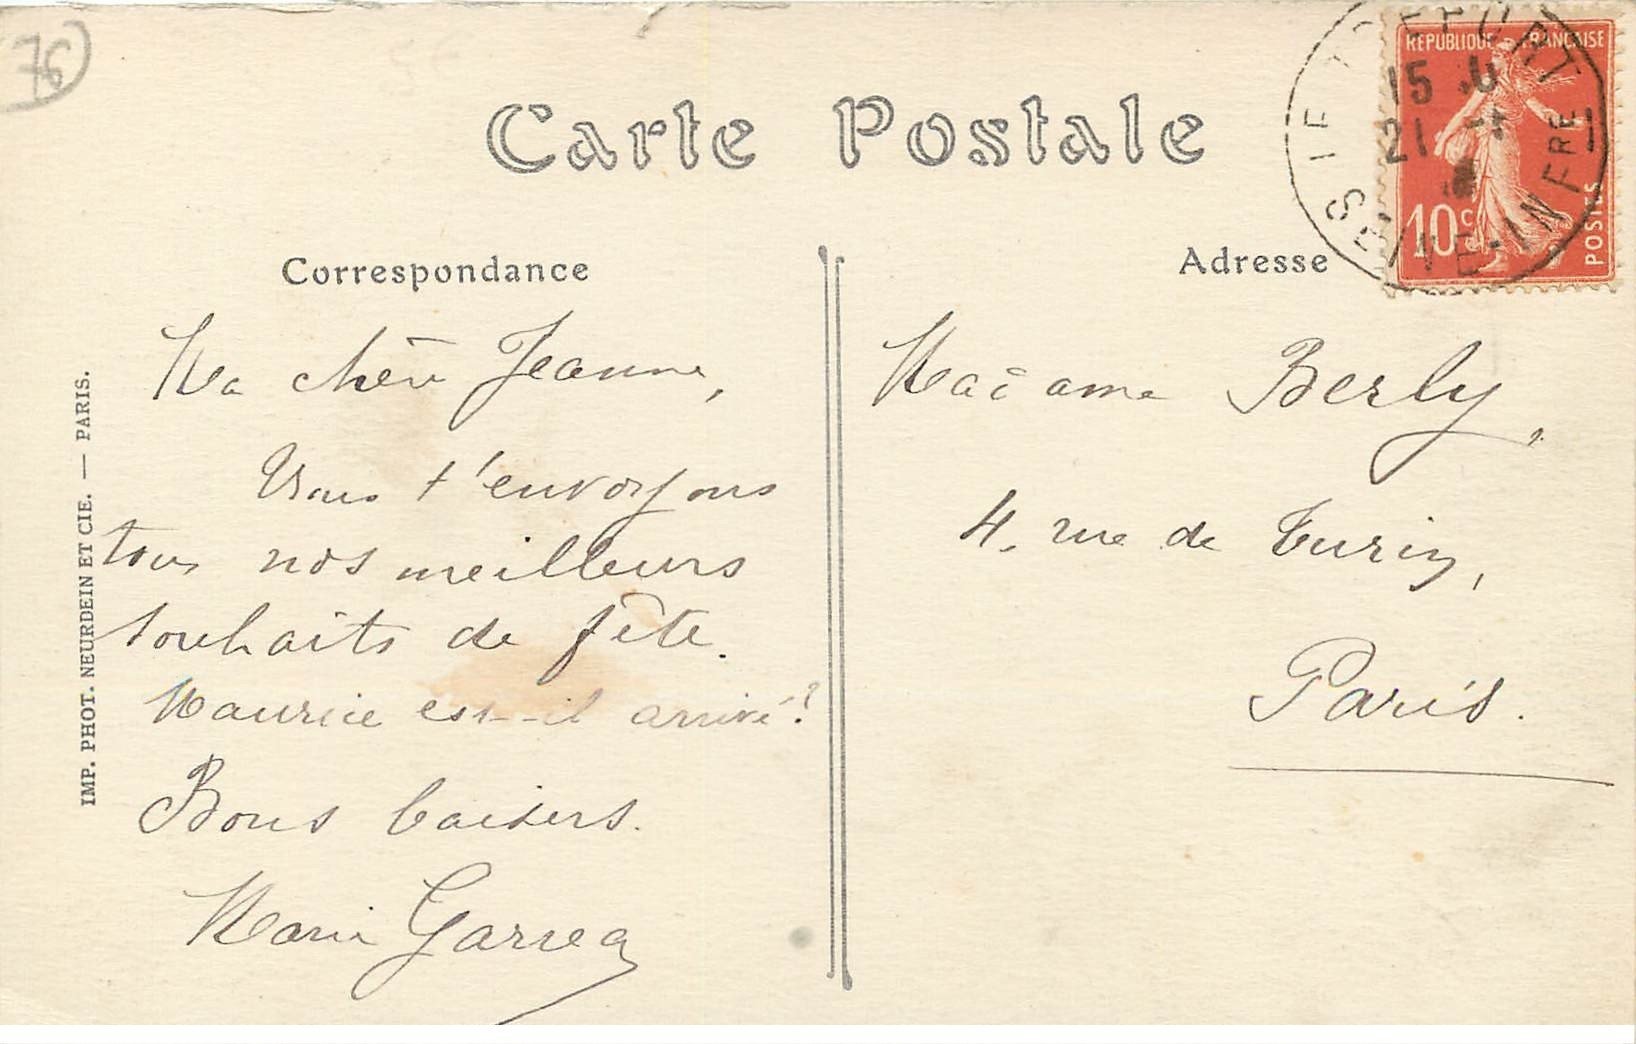 76
Carte Postale
RÉPUBLIQUE FRANÇAISE
10c
POSTES
15
21
SEINE-INFRE
Correspondance
Adresse
Ma chère Jeanne,
Nous t'envoyons
tous nos meilleurs
souhaits de fête.
Maurice est-il arrivé?
Bons baisers.
Marie Garrea
Madame Berly,
4, rue de Turin,
Paris.
IMP. PHOT. NEURDEIN ET CIE. — PARIS.